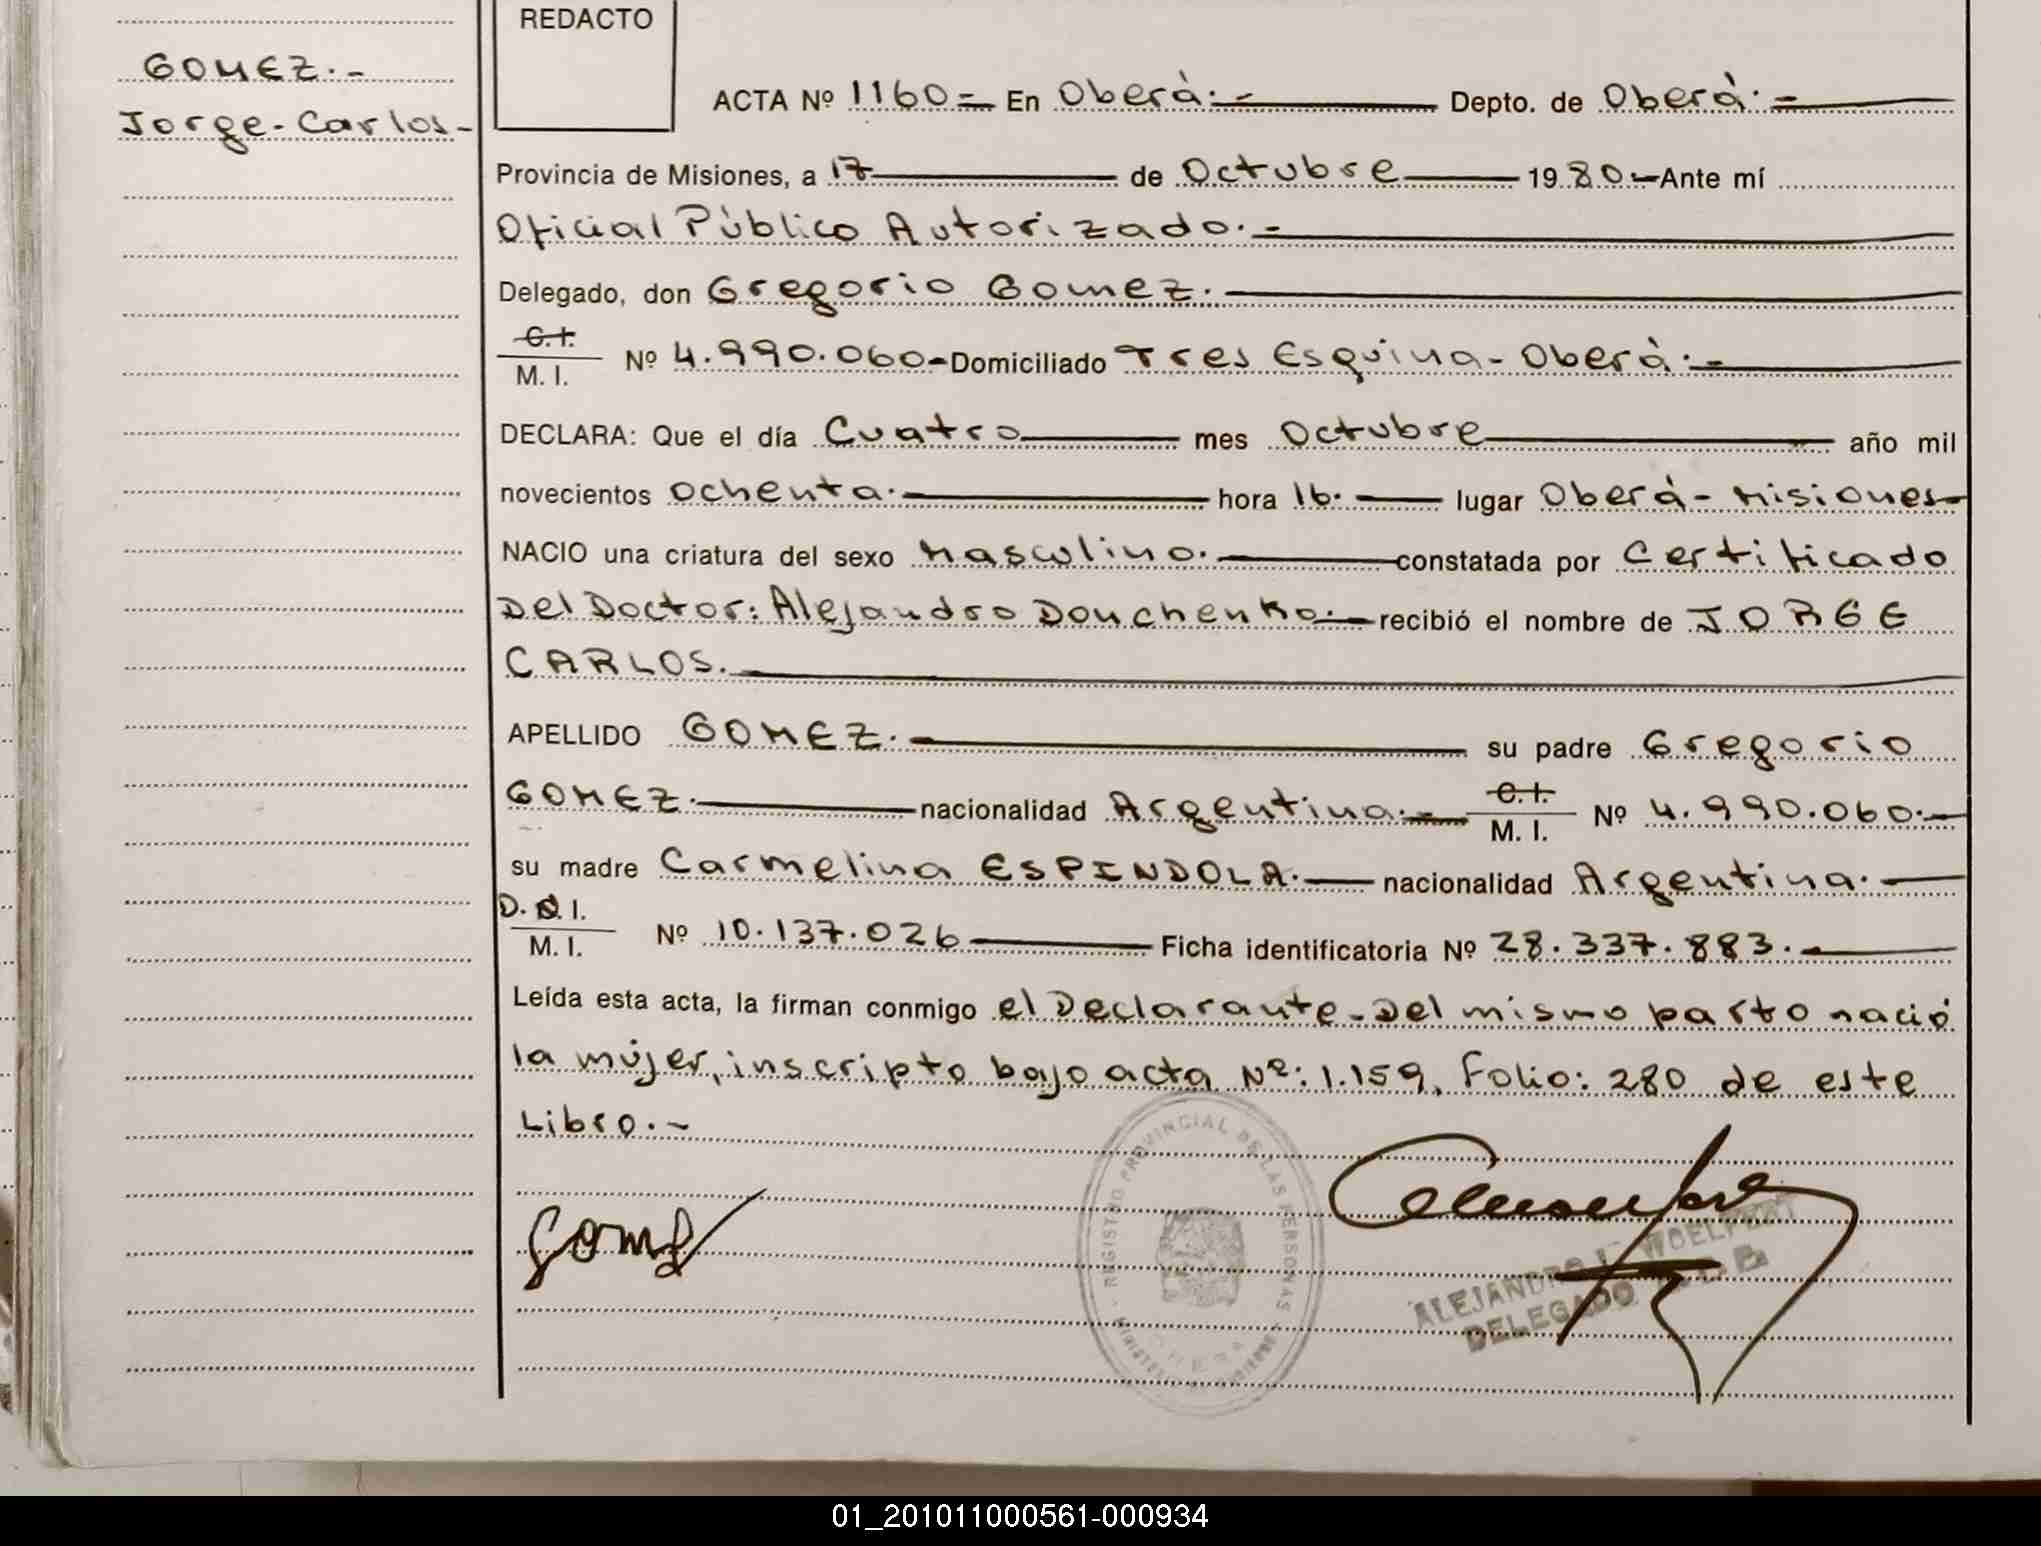 REDACTO
GOMEZ.-
Jorge-Carlos-
ACTA Nº 1160- En Oberá.- Depto. de Oberá.-
Provincia de Misiones, a 17 de Octubre 1980.- Ante mí
Oficial Público Autorizado.-
Delegado, don Gregorio Gomez.
C.I.
M. I.
Nº 4.990.060- Domiciliado Tres Esquina- Oberá.-
DECLARA: Que el día Cuatro mes Octubre año mil
novecientos ochenta. hora 16. lugar Oberá- Misiones-
NACIO una criatura del sexo Masculino. constatada por Certificado
Del Doctor: Alejandro Douchenko.- recibió el nombre de JORGE
CARLOS.
APELLIDO GOMEZ. su padre Gregorio
GOMEZ. nacionalidad Argentina.- C.I. Nº 4.990.060.-
M. I.
su madre Carmelina ESPINDOLA. nacionalidad Argentina.
D. N. I.
M. I.
Nº 10.137.026 Ficha identificatoria Nº 28.337.883.
Leída esta acta, la firman conmigo el Declarante-Del mismo parto nació
la mújer, inscripto bajo acta Nº: 1.159, Folio: 280 de este
Libro.-
REGISTRO PROVINCIAL DE LAS PERSONAS
Gomez
ALEJANDRO
DELEGADO
01_201011000561-000934